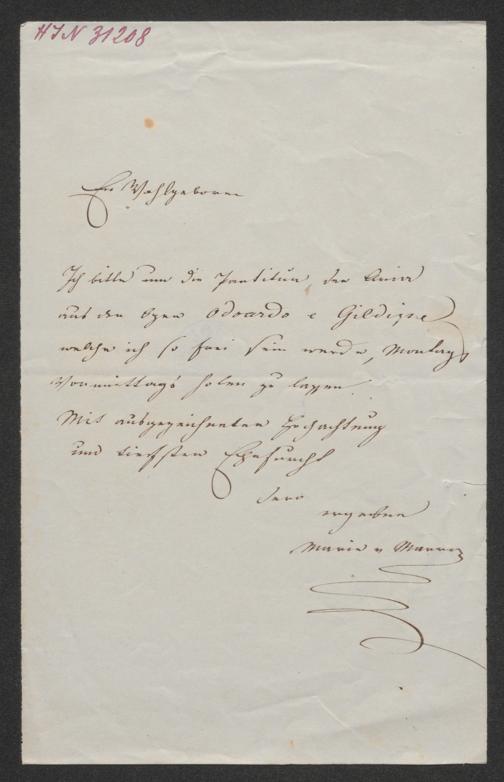 HJN 31208
Eu Wohlgeboren
Ich bitte um die Partitur, der Arien
aus der Oper Odoardo e Gildippe
welche ich so frei sein werde, Montags
Vormittags holen zu lassen.
Mit ausgezeichneter Hochachtung
und tiefster Ehrfurcht
Dero
ergebene
Marie v Marra